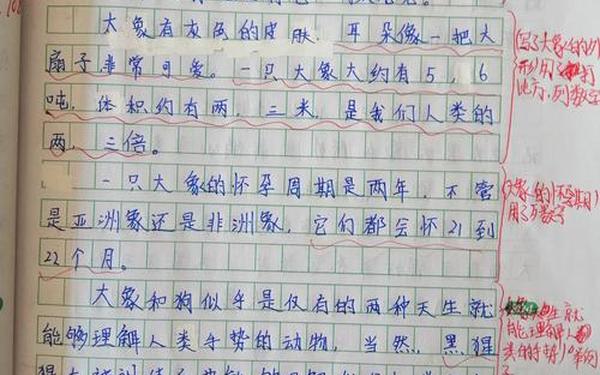 大象有灰色的皮肤，耳朵像一把大
扇子非常可爱。一只大象大约有5，6
吨，体积约有两，三米，是我们人类的
两，三倍。
一只大象的怀孕周期是两年，不管
是亚洲象还是非洲象，它们都会怀21到
22个月。
大象和狗似乎是仅有的两种天生就
能够理解人类手势的动物，当然，黑猩
写了大象的外
形，用了打
比方，列数字
大象的怀孕期
用了列数字
生就
能理解人
类的手势